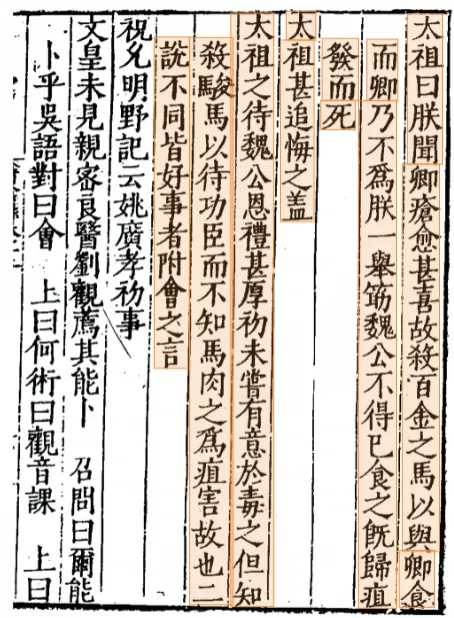 太祖曰朕聞卿瘡愈甚喜故殺百金之馬以與卿食
而卿乃不爲朕一舉筯魏公不得已食之既歸疽
發而死
太祖甚追悔之盖
太祖之待魏公恩禮甚厚初未嘗有意於毒之但知
殺駿馬以待功臣而不知馬肉之爲疽害故也二
說不同皆好事者附會之言
祝允明野記云姚廣孝初事
文皇未見親密良醫劉觀薦其能卜 召問曰爾能
卜乎吳語對曰會 上曰何術曰觀音課 上曰